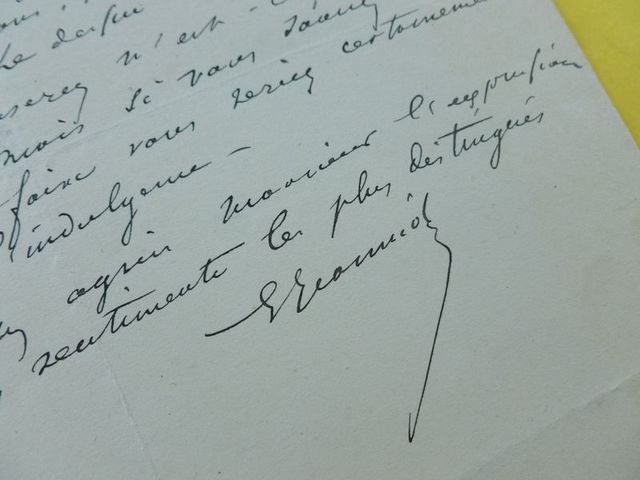 n'est
mais si vous
faire vous seriez certainement
l'indulgence –
agréer Monsieur l'expression
sentiments les plus distingués
GJeanniot